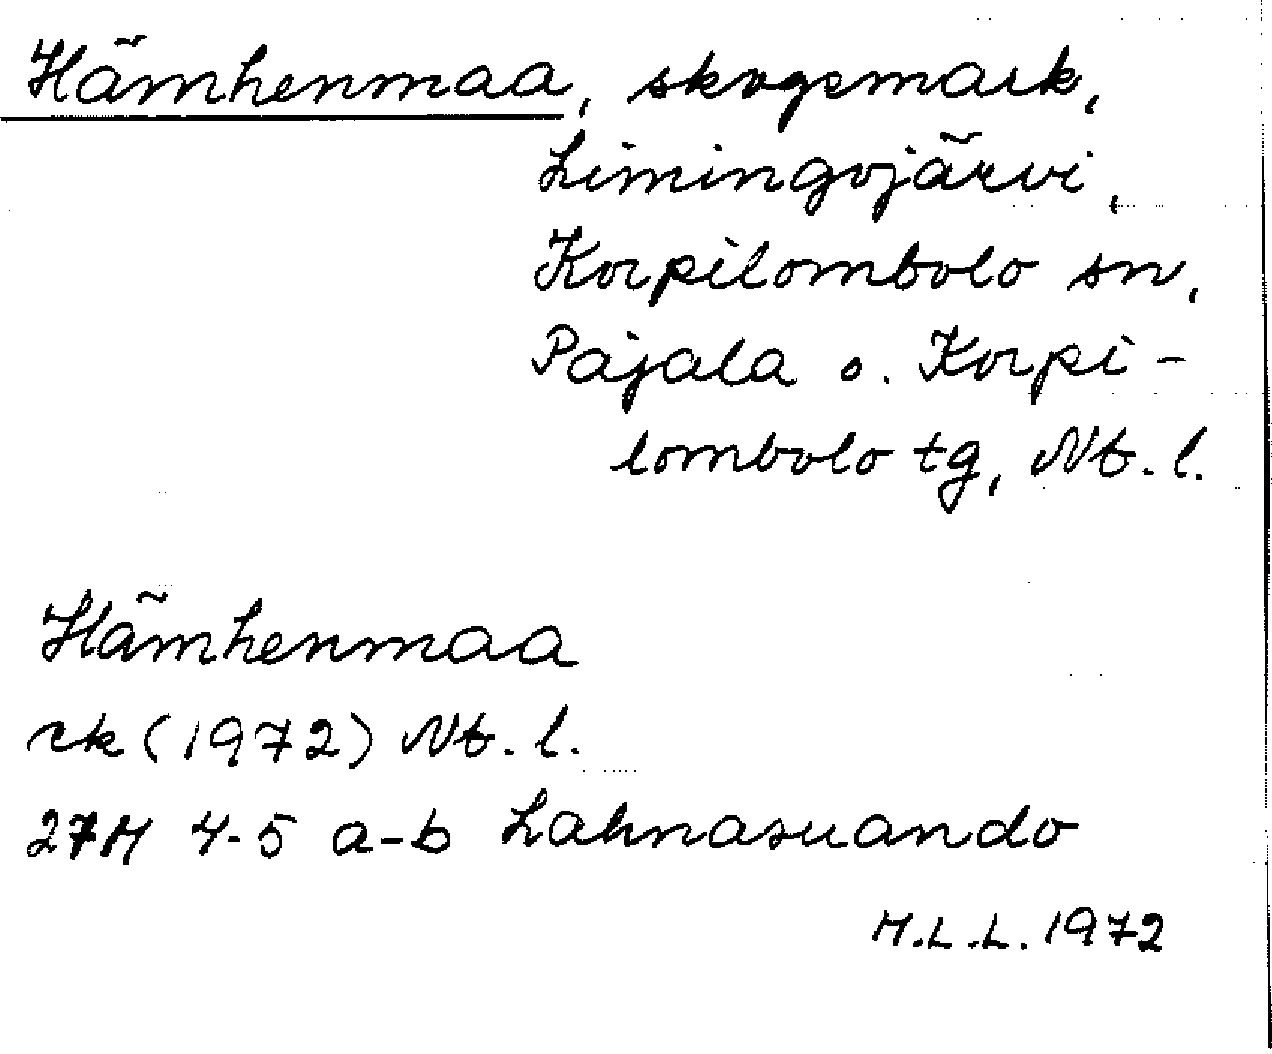 Hämhenmaa, skogsmark,
Limingojärvi,
Korpilombolo sn,
Pajala o. Korpi-
lombolo tg, Nb. l.
Hämhenmaa
rk (1972) Nb. l.
27M 4-5 a-b Lahnasuando
M.L.L. 1972